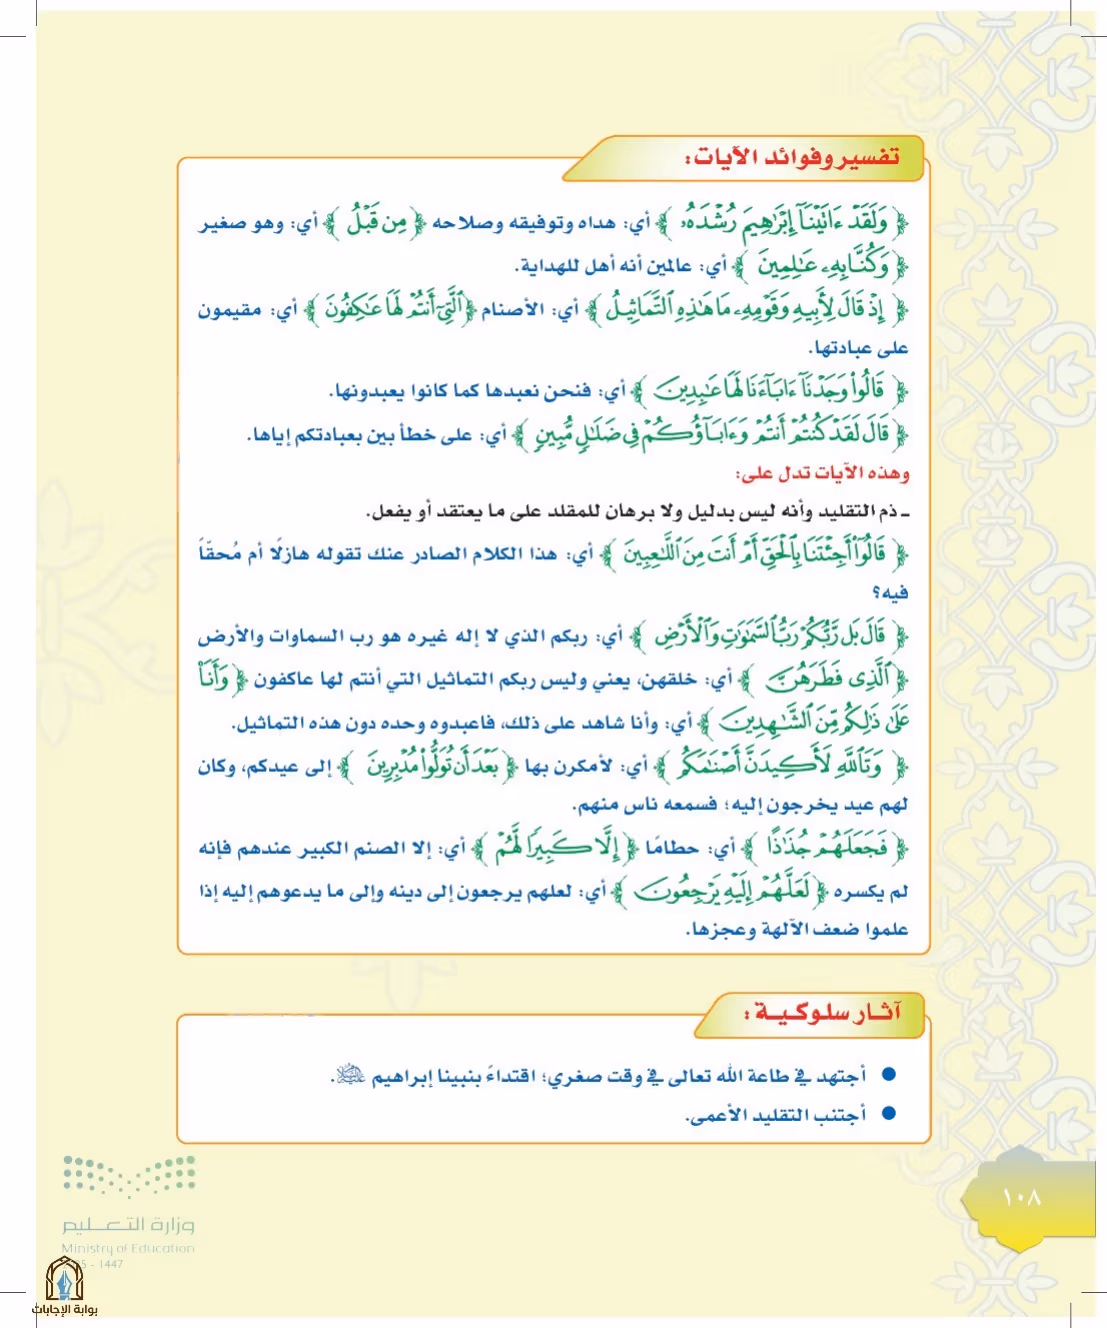 تفسير وفوائد الآيات:
﴿ وَلَقَدْ ءَاتَيْنَآ إِبْرَٰهِيمَ رُشْدَهُۥ ﴾ أي: هداه وتوفيقه وصلاحه ﴿ مِن قَبْلُ ﴾ أي: وهو صغير
﴿ وَكُنَّا بِهِۦ عَٰلِمِينَ ﴾ أي: عالمين أنه أهل للهداية.
﴿ إِذْ قَالَ لِأَبِيهِ وَقَوْمِهِۦ مَا هَٰذِهِ ٱلتَّمَاثِيلُ ﴾ أي: الأصنام ﴿ ٱلَّتِىٓ أَنتُمْ لَهَا عَٰكِفُونَ ﴾ أي: مقيمون
على عبادتها.
﴿ قَالُوا۟ وَجَدْنَآ ءَابَآءَنَا لَهَا عَٰبِدِينَ ﴾ أي: فنحن نعبدها كما كانوا يعبدونها.
﴿ قَالَ لَقَدْ كُنتُمْ أَنتُمْ وَءَابَآؤُكُمْ فِى ضَلَٰلٍ مُّبِينٍ ﴾ أي: على خطأ بين بعبادتكم إياها.
وهذه الآيات تدل على:
ـ ذم التقليد وأنه ليس بدليل ولا برهان للمقلد على ما يعتقد أو يفعل.
﴿ قَالُوٓا۟ أَجِئْتَنَا بِٱلْحَقِّ أَمْ أَنتَ مِنَ ٱللَّٰعِبِينَ ﴾ أي: هذا الكلام الصادر عنك تقوله هازلًا أم مُحقّاً
فيه؟
﴿ قَالَ بَل رَّبُّكُمْ رَبُّ ٱلسَّمَٰوَٰتِ وَٱلْأَرْضِ ﴾ أي: ربكم الذي لا إله غيره هو رب السماوات والأرض
﴿ ٱلَّذِى فَطَرَهُنَّ ﴾ أي: خلقهن، يعني وليس ربكم التماثيل التي أنتم لها عاكفون ﴿ وَأَنَا۠
عَلَىٰ ذَٰلِكُم مِّنَ ٱلشَّٰهِدِينَ ﴾ أي: وأنا شاهد على ذلك، فاعبدوه وحده دون هذه التماثيل.
﴿ وَتَٱللَّهِ لَأَكِيدَنَّ أَصْنَٰمَكُم ﴾ أي: لأمكرن بها ﴿ بَعْدَ أَن تُوَلُّوا۟ مُدْبِرِينَ ﴾ إلى عيدكم، وكان
لهم عيد يخرجون إليه؛ فسمعه ناس منهم.
﴿ فَجَعَلَهُمْ جُذَٰذًا ﴾ أي: حطامًا ﴿ إِلَّا كَبِيرًا لَّهُمْ ﴾ أي: إلا الصنم الكبير عندهم فإنه
لم يكسره ﴿ لَعَلَّهُمْ إِلَيْهِ يَرْجِعُونَ ﴾ أي: لعلهم يرجعون إلى دينه وإلى ما يدعوهم إليه إذا
علموا ضعف الآلهة وعجزها.
آثـار سـلوكـيـة :
● أجتهد في طاعة الله تعالى في وقت صغري؛ اقتداءً بنبينا إبراهيم ﷺ.
● أجتنب التقليد الأعمى.
١٠٨
وزارة التعـــليم
Ministry of Education
5 - 1447
بوابة الإجابات